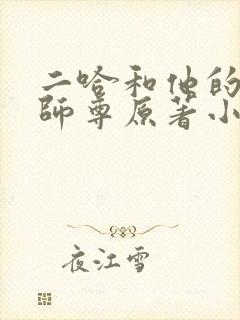 二哈和他的
師尊原著小
夜江雪